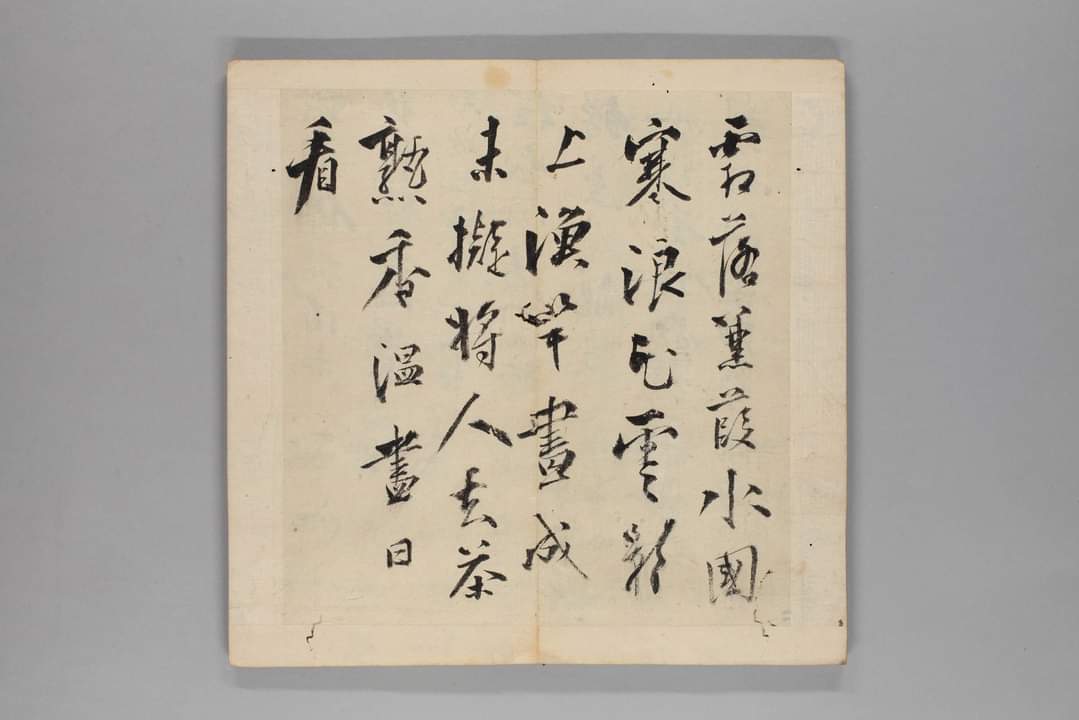 霜落蒹葭水國
寒浪花雲影
上漁竿畫成
未擬將人去茶
熟香溫盡日
看